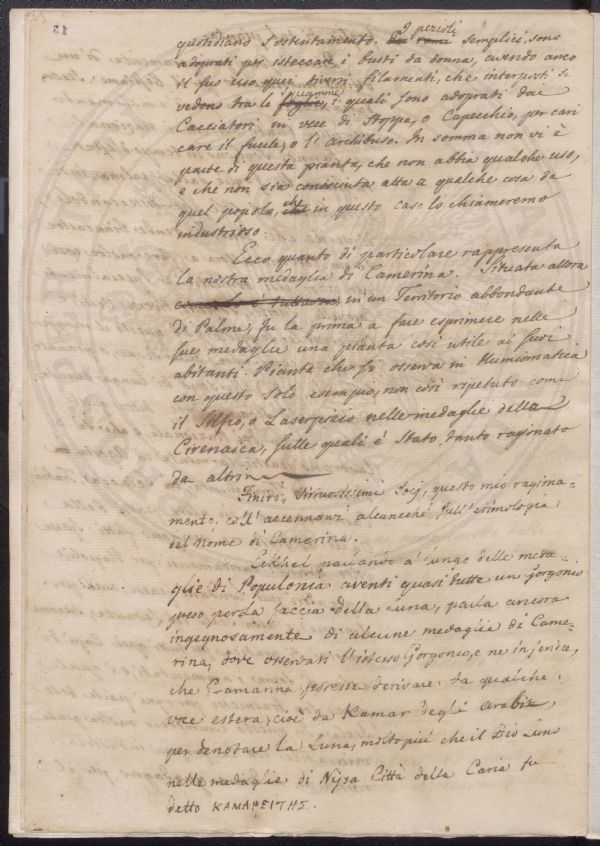 13
quotidiano sostentamento. I pezioli semplici, sono
adoprati per isteccare i busti da donna, avendo anco
il suo uso quei diversi filamenti, che interposti si
vedono tra le squamme, i quali sono adoprati dai
Cacciatori in vece di Stoppa, o Capecchio, per cari
care il fucile, o l'archibuso. In somma non vi è
parte di questa pianta, che non abbia qualche uso,
o che non sia conosciuta atta a qualche cosa da
quel popolo, che in questo caso lo chiameremo
industrioso.
Ecco quanto di particolare rappresenta
la nostra medaglia di Camerina. Situata allora
in un Territorio abbondante
di Palme, fu la prima a fare esprimere nelle
sue medaglie una pianta così utile ai suoi
abitanti. Pianta che si osserva in Numismatica
con questo solo esempio, non così ripetuto come
il Silfio, o Laserpizio nelle medaglie della
Cirenaica, sulle quali è stato tanto ragionato
da altri.
Finirò, Virtuosissimi Socj, questo mio ragiona-
mento, coll' accennarvi alcunchè sull' etimologia
del Nome di Camerina.
Eckhel parlando a lungo delle meda-
glie di Populonia aventi quasi tutte un Gorgonio
preso per la faccia della Luna, parla ancora
ingegnosamente di alcune medaglie di Came-
rina, dove osservasi l'istesso Gorgonio, e ne inferisce,
che Camarina potesse derivare da qualche
voce estera, cioè da Kamar degli Arabi,
per denotare la Luna, molto più che il Dio Luno
nelle medaglie di Nysa Città della Caria fu
detto ΚΑΜΑΡΕΙΤΗΣ.